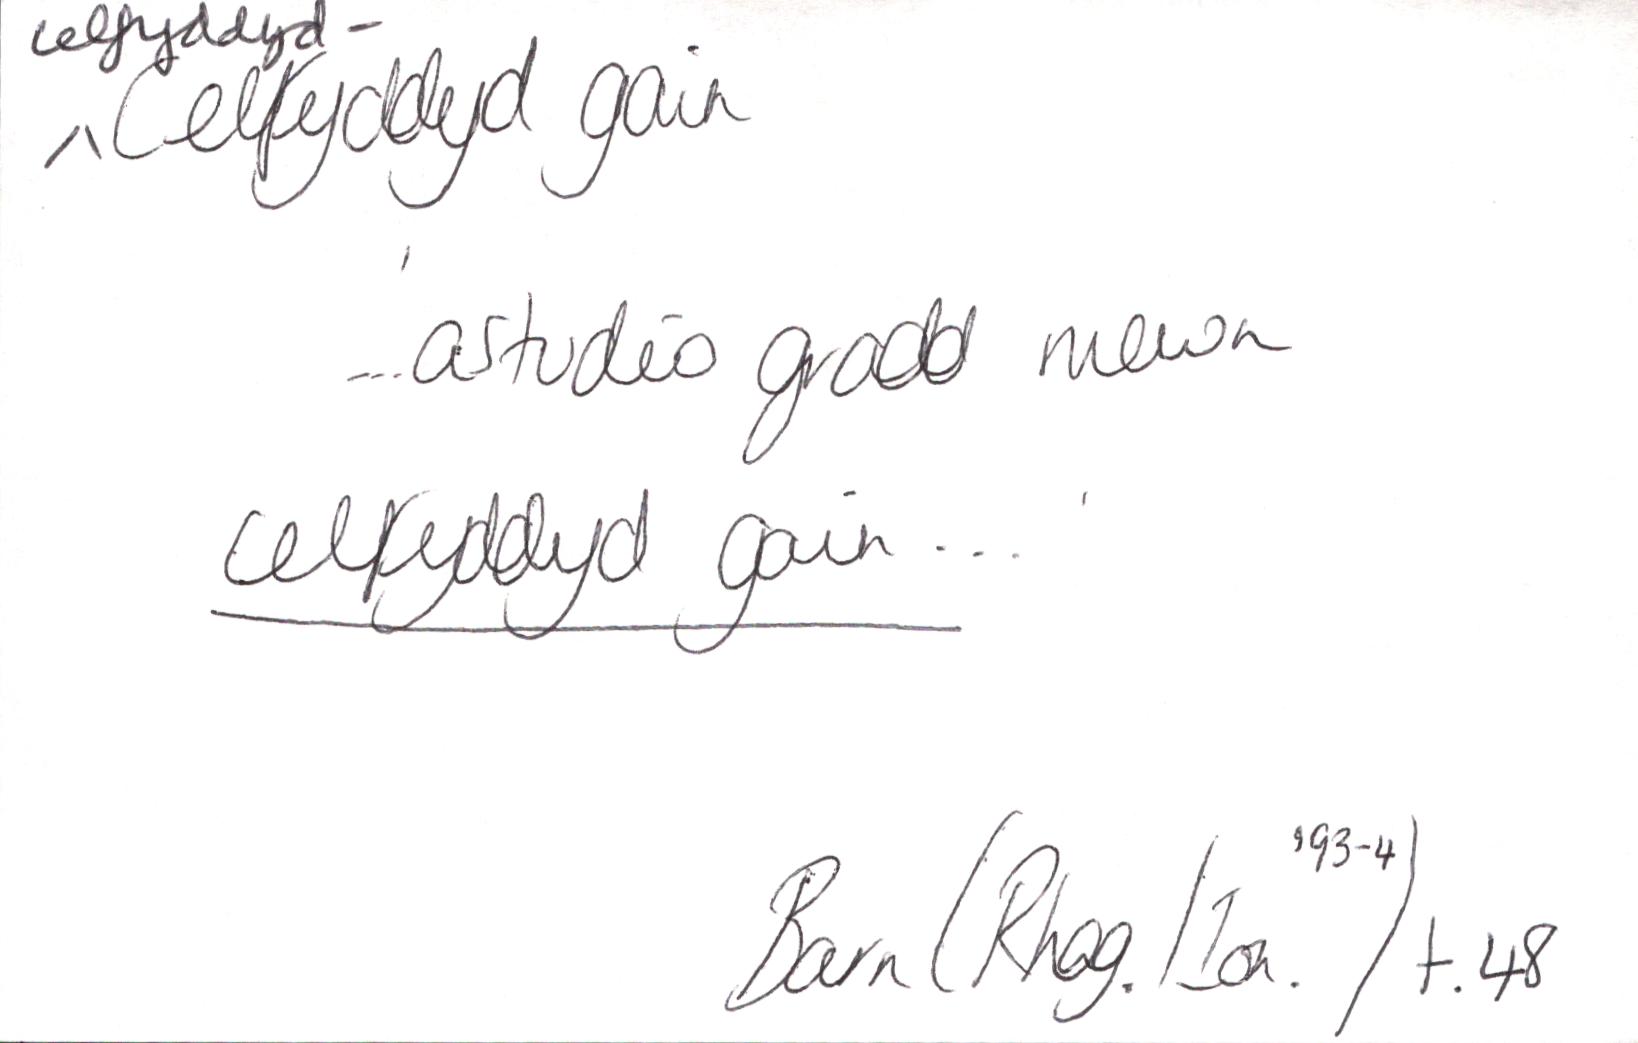 celfyddyd -
^ Celfyddyd gain
'
...astudio gradd mewn
celfyddyd gain ... '
Barn (Rhag./Ion. '93-4) t. 48